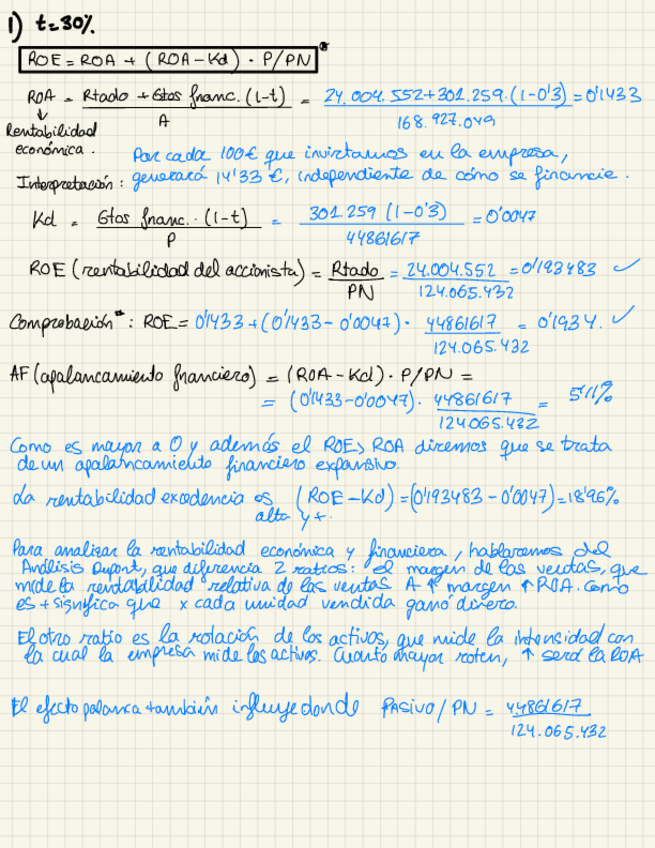 1) t=30%
ROE = ROA + (ROA - Kd) · P/PN *
ROA = Rtado + Gtos financ. (1-t) / A = 24.004.552+301.259·(1-0'3) / 168.927.049 = 0'1433
Rentabilidad
económica.
Por cada 100€ que invirtamos en la empresa,
Interpretación: generará 14'33 €, independiente de cómo se financie.
Kd = Gtos financ. (1-t) / P = 301.259 (1-0'3) / 44861617 = 0'0047
ROE (rentabilidad del accionista) = Rtado / PN = 24.004.552 / 124.065.432 = 0'193483 ✓
Comprobación*: ROE = 0'1433 + (0'1433 - 0'0047) · 44861617 / 124.065.432 = 0'1934. ✓
AF (apalancamiento financiero) = (ROA - Kd) · P/PN =
= (0'1433-0'0047) · 44861617 / 124.065.432 = 5'11%
Como es mayor a 0 y además el ROE> ROA diremos que se trata
de un apalancamiento financiero expansivo.
La rentabilidad excedencia es (ROE-Kd) = (0'193483-0'0047)=18'96%
alta y +.
Para analizar la rentabilidad económica y financiera, hablaremos del
Análisis Dupont, que diferencia 2 ratios: el margen de las ventas, que
mide la rentabilidad relativa de las ventas. A ↑ margen ↑ ROA. Como
es + significa que x cada unidad vendida ganó dinero.
El otro ratio es la rotación de los activos, que mide la intensidad con
la cual la empresa mide los activos. Cuanto mayor roten, ↑ será la ROA
El efecto palanca también influye donde PASIVO/PN = 44861617 / 124.065.432